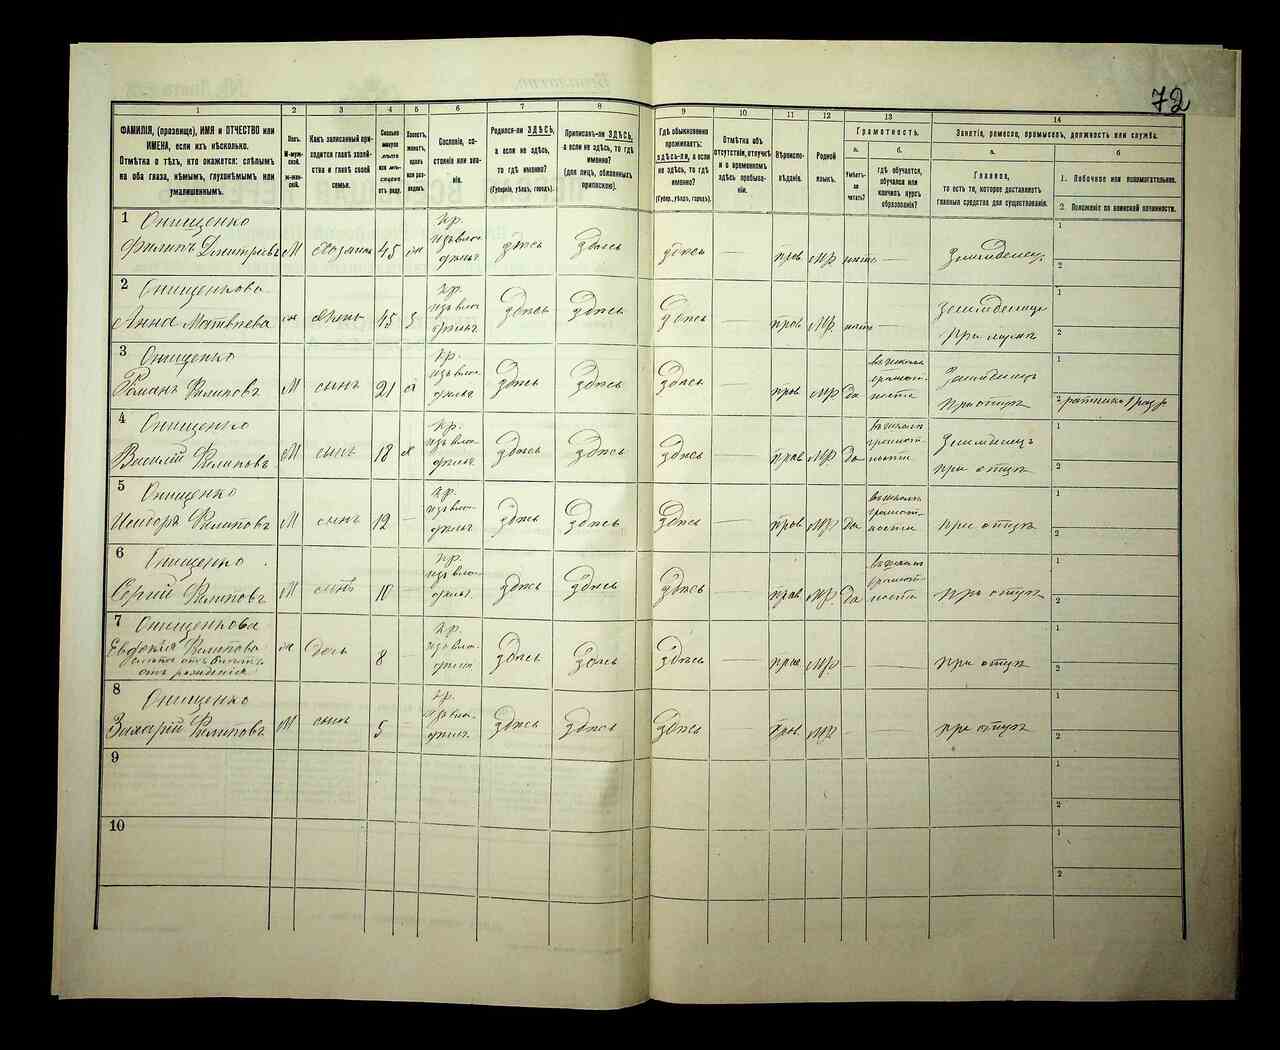 72
1
2
3
4
5
6
7
8
9
10
11
12
13
14
ФАМИЛІЯ, (прозвище), ИМЯ и ОТЧЕСТВО или
ИМЕНА, если ихъ нѣсколько.
Отмѣтка о тѣхъ, кто окажется: слѣпымъ
на оба глаза, нѣмымъ, глухонѣмымъ или
умалишеннымъ.
Полъ.
М-муж-
ской.
ж-жен-
ской.
Какъ записанный при-
ходится главѣ хозяй-
ства и главѣ своей
семьи.
Сколько
минуло
лѣтъ
или мѣ-
сяцевъ
отъ роду.
Холостъ,
женатъ,
вдовъ
или раз-
веденъ.
Сословіе, со-
стояніе или зва-
ніе.
Родился-ли ЗДѢСЬ,
а если не здѣсь,
то гдѣ именно?
(Губернія, уѣздъ, городъ).
Приписанъ-ли ЗДѢСЬ,
а если не здѣсь, то гдѣ
именно?
(для лицъ, обязанныхъ
припискою).
Гдѣ обыкновенно
проживаетъ:
здѣсь-ли, а если
не здѣсь, то гдѣ
именно?
(Губер., уѣздъ, городъ).
Отмѣтка объ
отсутствіи, отлучкѣ
и о временномъ
здѣсь пребыва-
ніи.
Вѣроиспо-
вѣданіе.
Родной
языкъ.
Грамотность.
а.
Умѣетъ-
ли
читать?
б.
гдѣ обучается,
обучался или
кончилъ курсъ
образованія?
Занятіе, ремесло, промыселъ, должность или служба.
а.
Главное,
то есть то, которое доставляетъ
главныя средства для существованія.
б
1. Побочное или вспомогательное.
2 Положеніе по воинской повинности.
1 Онищенко
Филипъ Дмитріевъ М хозяинъ 45 кр. здѣсь здѣсь здѣсь — прав МР —
1
2
2 Онищенкова
Анна Матвѣева ж жена 45 кр. здѣсь здѣсь здѣсь — прав МР —
при мужѣ
1
2
3 Онищенко
Романъ Филиповъ М сынъ 21 кр. здѣсь здѣсь здѣсь — прав МР да
въ школѣ
грамот-
ности
при отцѣ
1
2 ратникъ 1 разр
4 Онищенко
Василій Филиповъ М сынъ 18 кр. здѣсь здѣсь здѣсь — прав МР да
въ школѣ
грамот-
ности
при отцѣ
1
2
5 Онищенко
Исидоръ Филиповъ М сынъ 12 — кр. здѣсь здѣсь здѣсь — прав МР да
въ школѣ
грамот-
ности
при отцѣ
1
2
6 Онищенко
Сергій Филиповъ М сынъ 10 — кр. здѣсь здѣсь здѣсь — прав МР. да
въ школѣ
грамот-
ности
при отцѣ
1
2
7 Онищенкова
Евдокія Филипова ж дочь 8 — кр. здѣсь здѣсь здѣсь — прав МР. — —
отъ рожденія
при отцѣ
1
2
8 Онищенко
Захарій Филиповъ М сынъ 5 — кр. здѣсь здѣсь здѣсь — прав. МР — —
при отцѣ
1
2
9
1
2
10
1
2